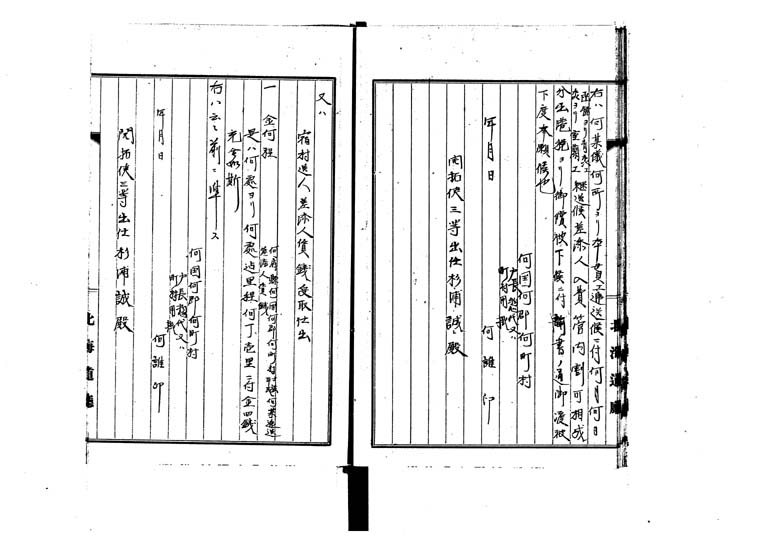 右ハ何某儀何所ヨリ本貫ヱ逓送候ニ付何月何日
函館ヨリ青森ヱ
ヨリ室蘭ヱ
継送候差添人入費管内割可相成
分正覚税ヨリ御償被下候ニ付 書ノ通御渡被
下度本願候也
何国何郡何町村
戸長総代又ハ
町村用掛
年月日
何誰印
開拓使三等出仕杉浦誠殿
又ハ
宿村送人差添人賃銭受取仕出
一金何程
何府県何国何郡何町村 何某逓送
差添人賃銭
是ハ何処ヨリ何処迄里程何丁壱里ニ付金四銭
充如斯
右ハ云々前ニ準ス
何国何郡何町村
戸長総代又ハ
町村用掛
年月日
何誰印
開拓使三等出仕杉浦誠殿
北海道庁